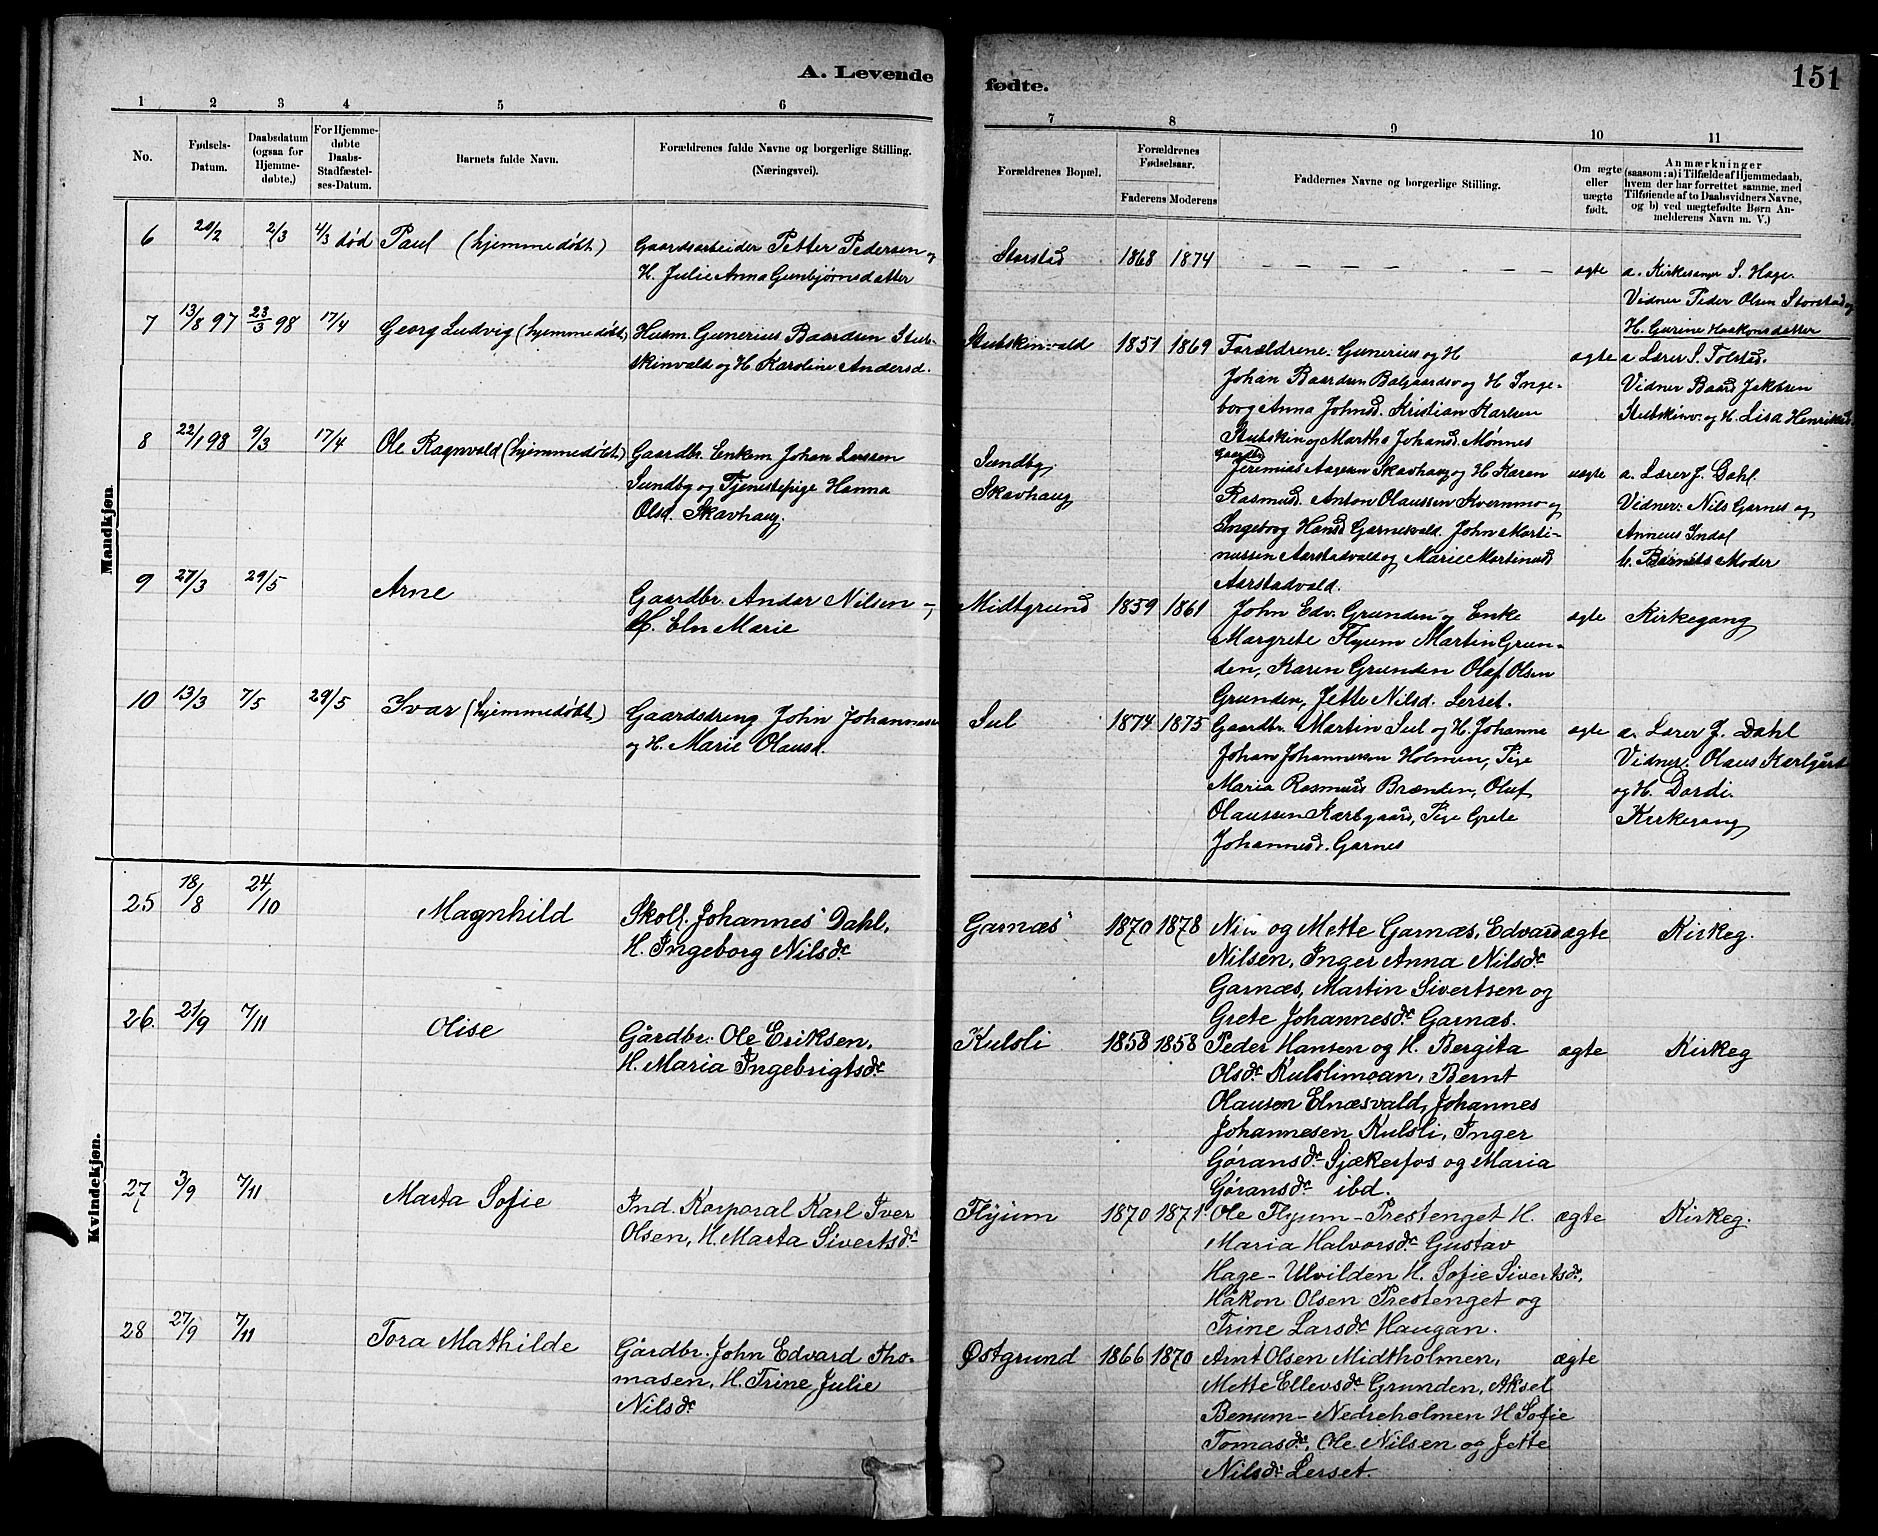 A. Levende fødte.
151
1 2 3 4 5 6 7 8 9 10 11
No.
Fødsels-
Datum.
Daabsdatum
(ogsaa for
Hjemme-
døbte,)
For Hjemme-
døbte
Daabs-
Stadfæstel-
ses-Datum.
Barnets fulde Navn.
Forældrenes fulde Navne og borgerlige Stilling.
(Næringsvei).
Forældrenes Bopæl.
Forældrenes
Fødselsaar.
Faderens Moderens
Faddernes Navne og borgerlige Stilling.
Om ægte
eller
uægte
født.
Anmærkninger
(saasom: a) i Tilfælde af Hjemmedaab,
hvem der har forrettet samme, med
Tilføiende af to Daabsvidners Navne,
og b) ved uægtefødte Børn An-
melderens Navn m. V.)
Mandkjøn.
6 20/2 2/3 4/3 død Paul (hjemmedøbt)
Gaardsarbeider Petter Pedersen og
H. Julie Anna Gunbjørnsdatter
Storstad 1868 1874 — — — — — — — — ægte
a. Kirkesanger S. Hage.
Vidner Peder Olsen Storstad og
H. Gurine Haakonsdatter
7 13/8 97 23/3 98 17/4 Georg Ludvig (hjemmedøbt)
Husm. Gunerius Baardsen Stub-
skinvald og H. Karoline Andersd.
Stubskinvald 1851 1869
Forældrene: Gunerius og H
Johan Baardsen Balgaardsv og H Inge-
borg Anna Johnsd. Kristian Karlsen
Stubskin og Martha Johansd. Mønnes
ægte
a Lærer S. Tolstad.
Vidner Baard Jakobsen
Stubskinv. og H. Lisa Henriksd.
8 22/1 98 9/3 17/4 Ole Ragnvald (hjemmedøbt)
Gaardbr. Enkem. Johan Larssen
Sundby og Tjenestepige Hanna
Olsd. Skavhaug.
Sundby
Skavhaug
Gaardbr
Jeremias Aagesen Skavhaug og H Karen
Rasmusd. Anton Olaussen Kvernmo og
Ingeborg Hansd Garnesvald. John Marti-
nussen Aarstadvald og Marie Martinusd
Aarstadvald.
uægte
a. Lærer J. Dahl.
Vidner: Nils Garnes og
Anneus Indal
b. Barnets Moder
9 27/3 29/5 Arne
Gaardbr. Andor Nilsen -
H. Eln Marie
Midtgrund 1859 1861
John Edv. Grunden og Enke
Margrete Flyum Martin Grun-
den, Karen Grunden Olaf Olsen
Grunden, Jette Nilsd. Lerset.
ægte Kirkegang
10 13/3 7/5 29/5 Ivar (hjemmedøbt)
Gaardsdreng John Johannessen
og H. Marie Olausd.
Sul 1874 1875
Gaardbr. Martin Sul og H. Johanna
Johan Johannessen Holmen, Pige
Maria Rasmusd Brænden, Oluf
Olaussen Karlgaard, Pige Grete
Johannesd. Garnes
ægte
a. Lærer J. Dahl
Vidner: Olaus Karlgård
og H. Dordi.
Kirkegang
Kvindekjøn.
25 18/8 24/10 Magnhild
Skoll. Johannes Dahl,
H. Ingeborg Nilsdr
Garnæs 1870 1878
og Mette Garnæs, Edvard
Nilsen, Inger Anna Nilsdr
Garnæs, Martin Sivertsen og
Grete Johannesdr Garnæs.
ægte Kirkeg.
26. 21/9 7/11 Olise
Gårdbr. Ole Eriksen,
H. Maria Ingebrigtsdr
Kulsli 1858 1858
Peder Hansen og H. Bergita
Olsdr Kulslimoan, Bernt
Olausen Elnæsvald, Johannes
Johannesen Kulsli, Inger
Gøransdr Sjækerfos og Maria
Gøransdr ibd.
ægte Kirkeg
27 3/9 7/11 Marta Sofie
Ind. Korporal Karl Iver
Olsen, H. Marta Sivertsdr
Flyum 1870 1871
Ole Flyum - Prestenget H.
Maria Halvorsdr Gustav
Hage - Ulvilden H. Sofie Sivertsdr,
Håkon Olsen Prestenget og
Trine Larsdr Haugan.
ægte Kirkeg.
28 27/9 7/11 Tora Mathilde
Gårdbr. John Edvard Tho-
masen, H. Trine Julie
Nilsdr
Østgrund 1866 1870
Arnt Olsen Midtholmen,
Mette Ellevsdr Grunden, Aksel
Benum - Nedreholmen H Sofie
Tomasdr, Ole Nilsen og Jette
Nilsdr Lerset.
ægte